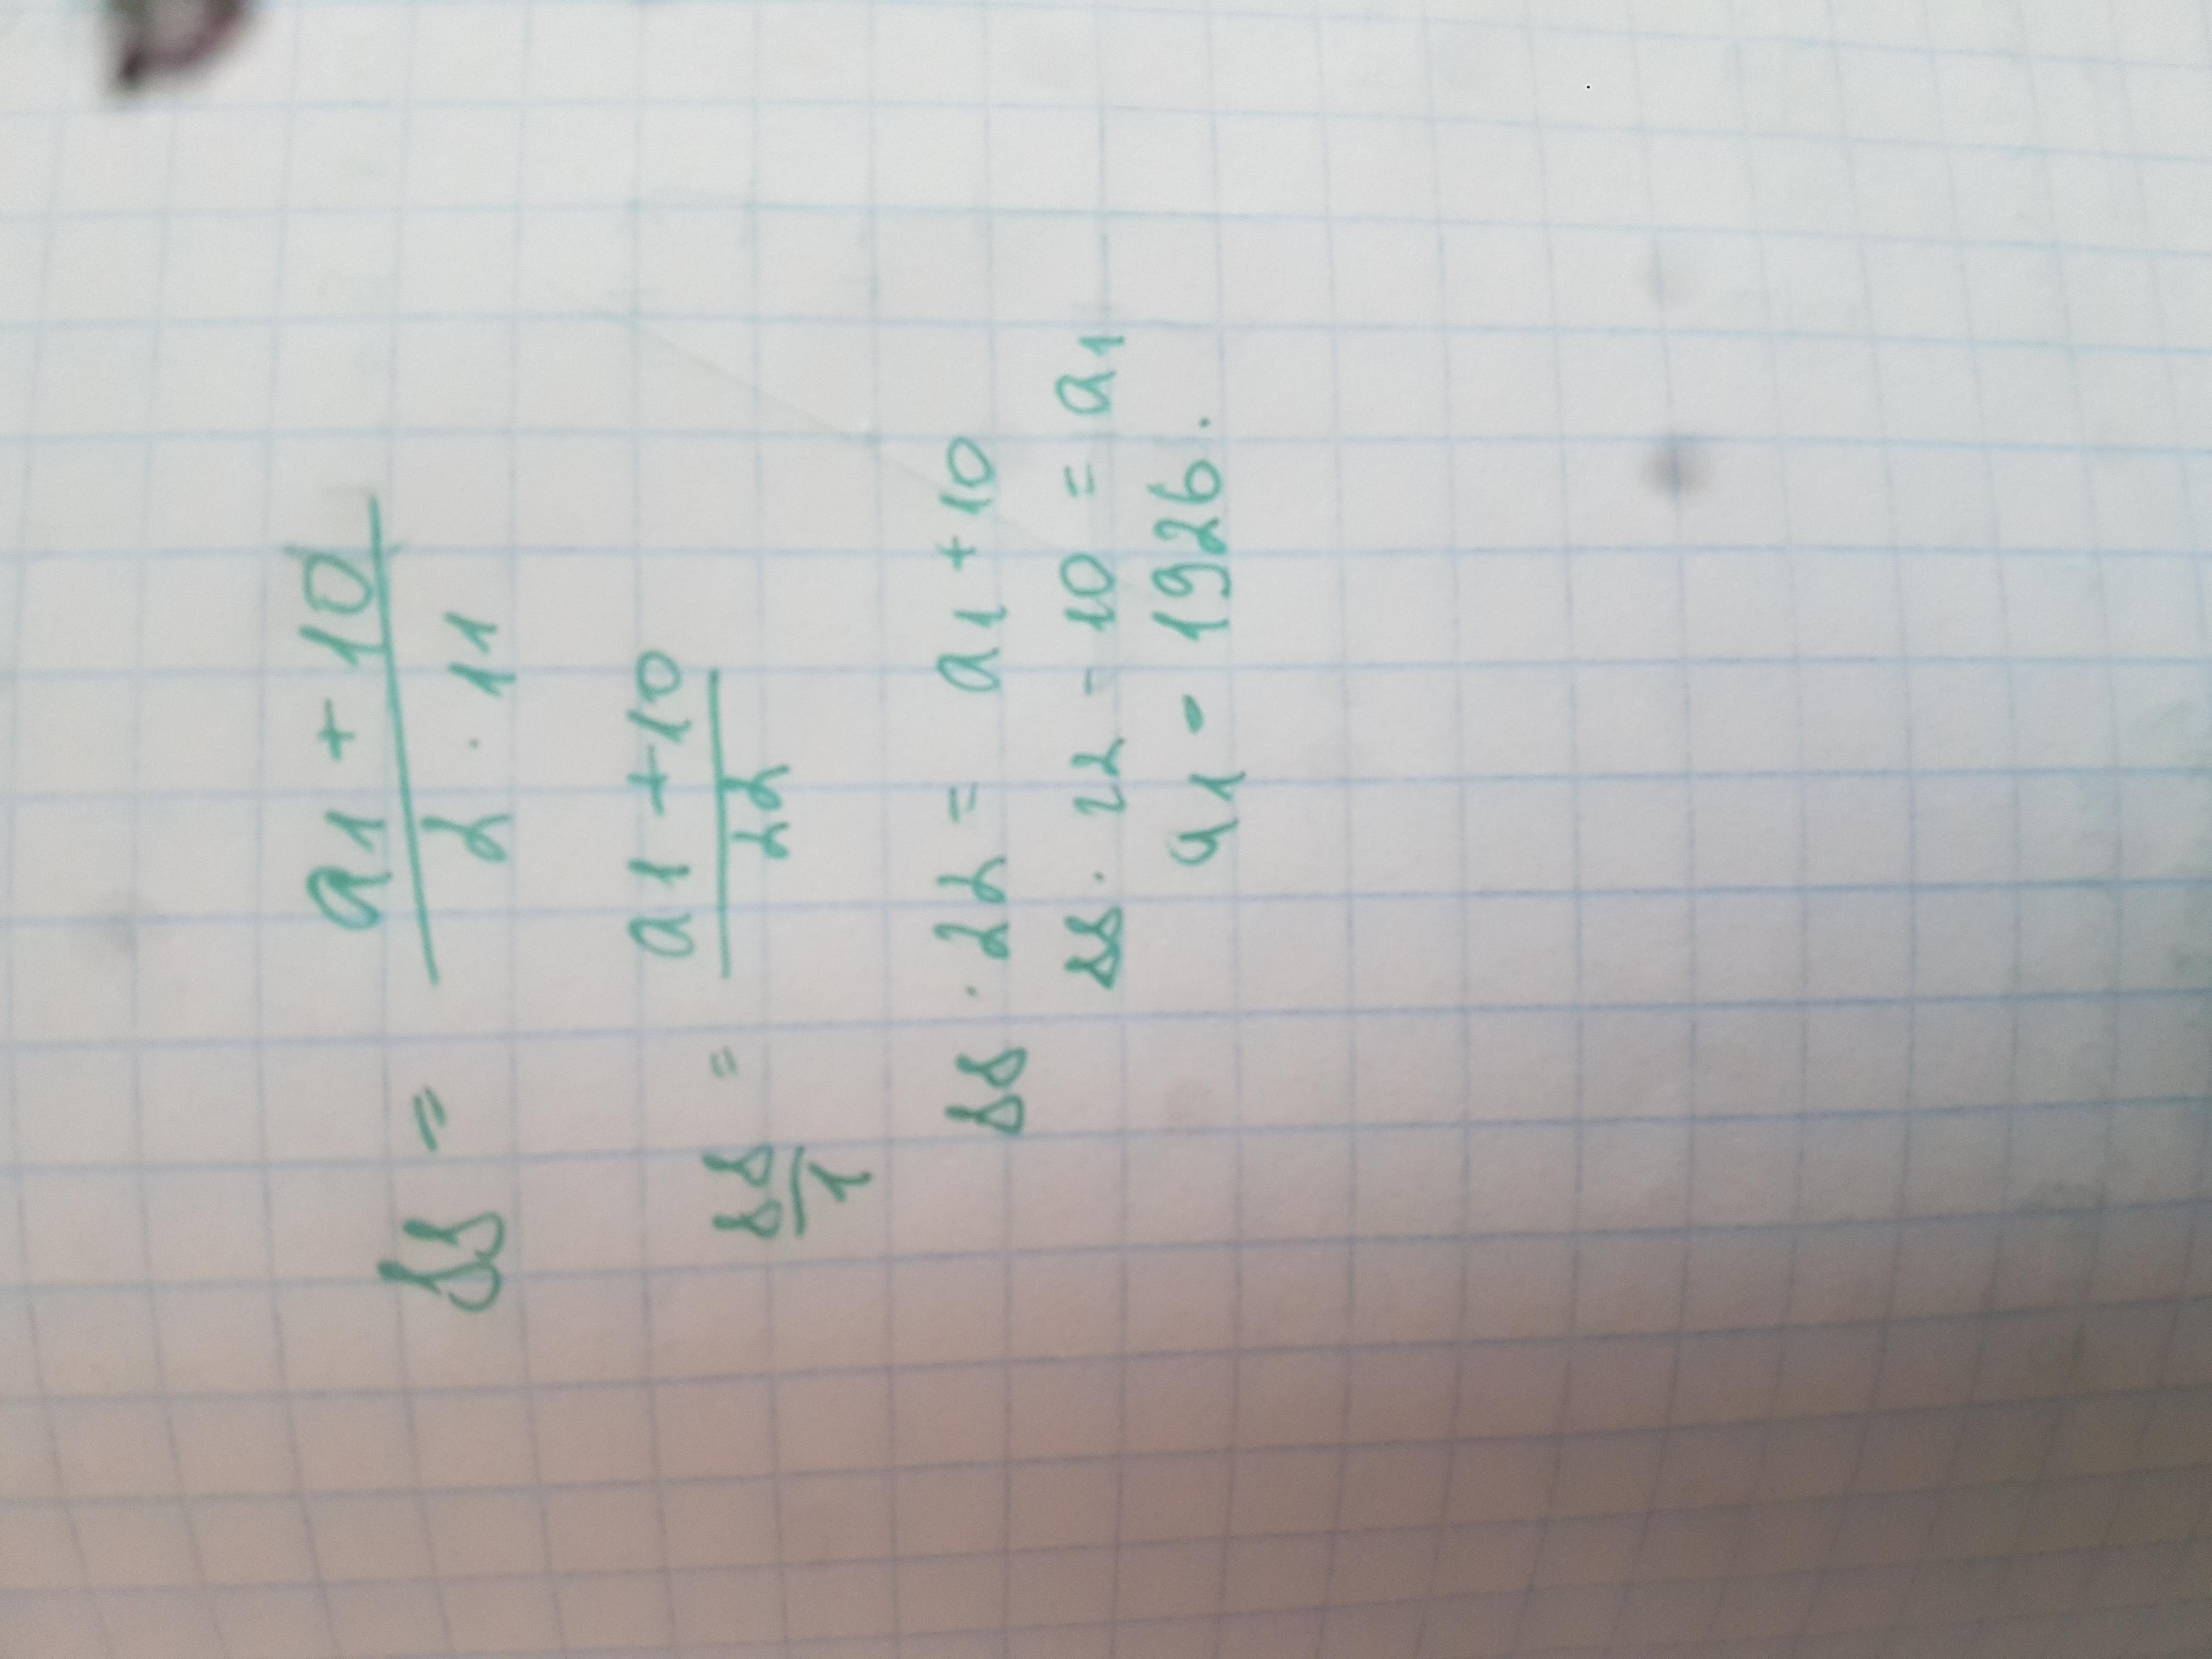 88 = a1 + 10 / 2 · 11
88/1 = a1 + 10 / 22
88 · 22 = a1 + 10
88 · 22 - 10 = a1
a1 - 1926.